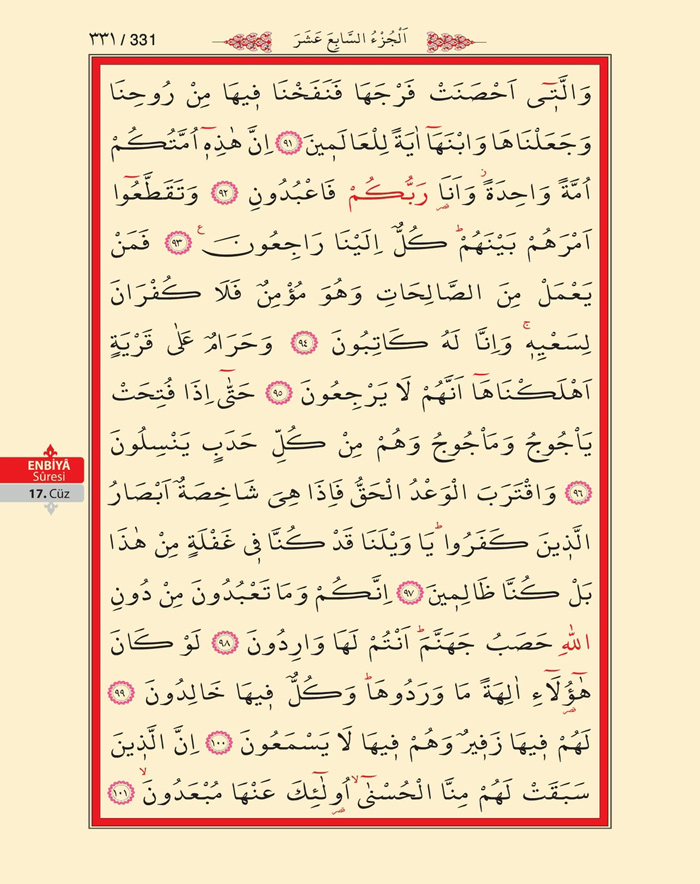 ٣٣١ / 331
اَلْجُزْءُ السَّابِعَ عَشَرَ
وَالَّت۪ٓي اَحْصَنَتْ فَرْجَهَا فَنَفَخْنَا ف۪يهَا مِنْ رُوحِنَا
وَجَعَلْنَاهَا وَابْنَهَٓا اٰيَةً لِلْعَالَم۪ينَ ﴿٩١﴾ اِنَّ هٰذِه۪ٓ اُمَّتُكُمْ
اُمَّةً وَاحِدَةًۘ وَاَنَا۬ رَبُّكُمْ فَاعْبُدُونِ ﴿٩٢﴾ وَتَقَطَّعُٓوا
اَمْرَهُمْ بَيْنَهُمْۜ كُلٌّ اِلَيْنَا رَاجِعُونَ۟ ﴿٩٣﴾ فَمَنْ
يَعْمَلْ مِنَ الصَّالِحَاتِ وَهُوَ مُؤْمِنٌ فَلَا كُفْرَانَ
لِسَعْيِه۪ۚ وَاِنَّا لَهُ كَاتِبُونَ ﴿٩٤﴾ وَحَرَامٌ عَلٰى قَرْيَةٍ
اَهْلَكْنَاهَٓا اَنَّهُمْ لَا يَرْجِعُونَ ﴿٩٥﴾ حَتّٰٓى اِذَا فُتِحَتْ
يَأْجُوجُ وَمَأْجُوجُ وَهُمْ مِنْ كُلِّ حَدَبٍ يَنْسِلُونَ
﴿٩٦﴾ وَاقْتَرَبَ الْوَعْدُ الْحَقُّ فَاِذَا هِيَ شَاخِصَةٌ اَبْصَارُ
ENBİYÂ
Sûresi
17. Cüz
الَّذ۪ينَ كَفَرُواۜ يَا وَيْلَنَا قَدْ كُنَّا ف۪ي غَفْلَةٍ مِنْ هٰذَا
بَلْ كُنَّا ظَالِم۪ينَ ﴿٩٧﴾ اِنَّكُمْ وَمَا تَعْبُدُونَ مِنْ دُونِ
اللّٰهِ حَصَبُ جَهَنَّمَۜ اَنْتُمْ لَهَا وَارِدُونَ ﴿٩٨﴾ لَوْ كَانَ
هٰٓؤُ۬لَٓاءِ اٰلِهَةً مَا وَرَدُوهَاۜ وَكُلٌّ ف۪يهَا خَالِدُونَ ﴿٩٩﴾
لَهُمْ ف۪يهَا زَف۪يرٌ وَهُمْ ف۪يهَا لَا يَسْمَعُونَ ﴿١٠٠﴾ اِنَّ الَّذ۪ينَ
سَبَقَتْ لَهُمْ مِنَّا الْحُسْنٰٓىۙ اُو۬لٰٓئِكَ عَنْهَا مُبْعَدُونَۙ ﴿١٠١﴾